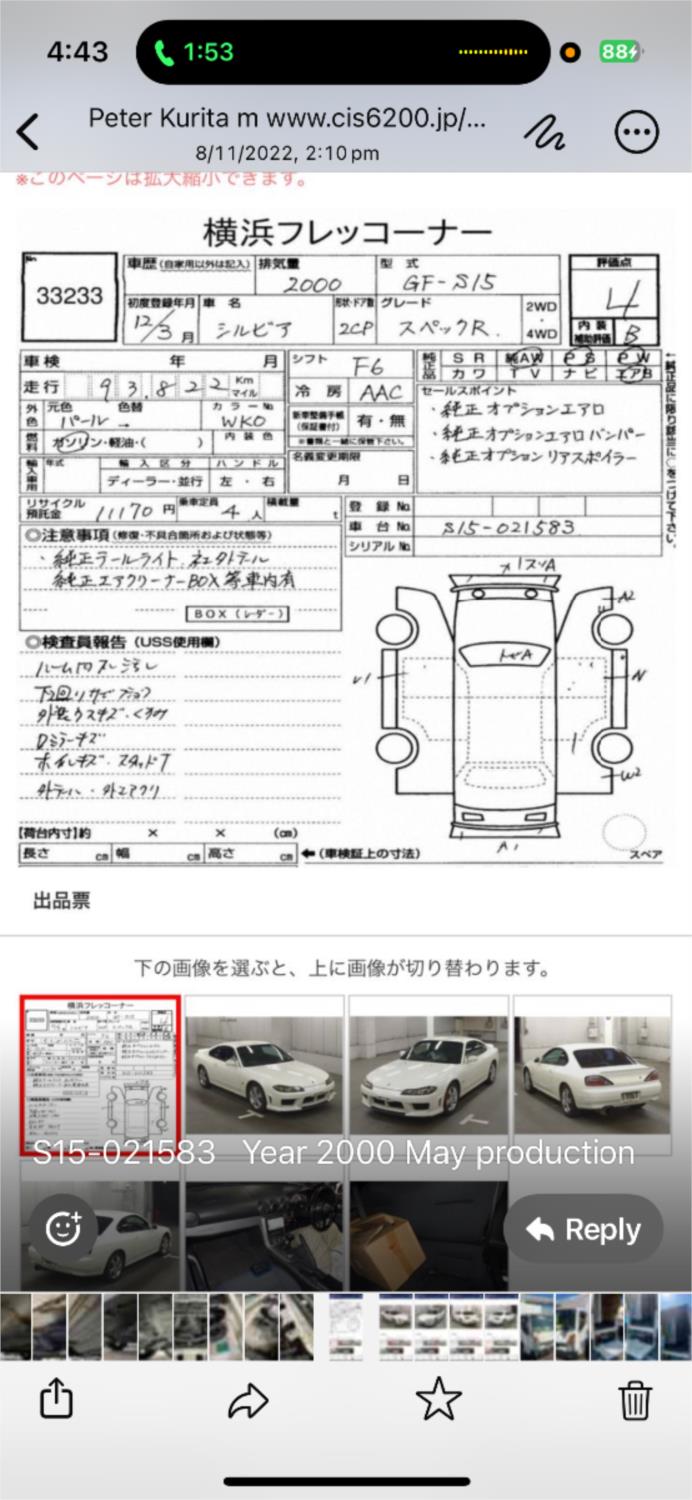 4:43
1:53
88
Peter Kurita m www.cis6200.jp/...
8/11/2022, 2:10 pm
※このページは拡大縮小できます。
横浜フレッコーナー
No
33233
車歴(自家用以外は記入)
排気量
2000
型式
GF-S15
評価点
4
初度登録年月
12/3月
車名
シルビア
形状・ドア数
2CP
グレード
スペックR.
2WD
・
4WD
内装
補助評価
B
車検 年 月
シフト
F6
純正品
SR 純AW PS PW
カワ TV ナビ エアB
走行 93,822 Km
マイル
冷房
AAC
セールスポイント
・純正オプションエアロ
・純正オプションエアロバンパー
・純正オプションリアスポイラー
外色
元色 色替
パール →
カラーNo
WK0
新車整備手帳
(保証書付)
有・無
※書類と一緒に保管下さい。
燃料
ガソリン・軽油・( )
内装色
名義変更期限
月 日
輸入車用
年式
輸入区分
ディーラー・並行
ハンドル
左・右
リサイクル
預託金
11170円
乗車定員
4人
積載量
t
登録No.
車台No.
S15-021583
シリアルNo.
◎注意事項(修復・不具合箇所および状態等)
・純正テールライト
純正エアクリーナーBOX等車内有
BOX(レダー)
◎検査員報告(USS使用欄)
Dミラーキズ
【荷台内寸】約 × × (cm)
長さ cm 幅 cm 高さ cm
←(車検証上の寸法)
A2
W2
A1
スペア
出品票
下の画像を選ぶと、上に画像が切り替わります。
S15-021583 Year 2000 May production
Reply